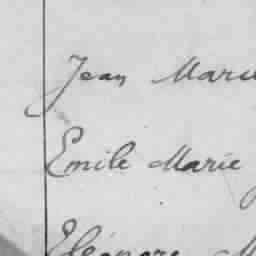 Jean Marie
Emile Marie
Eléonore M